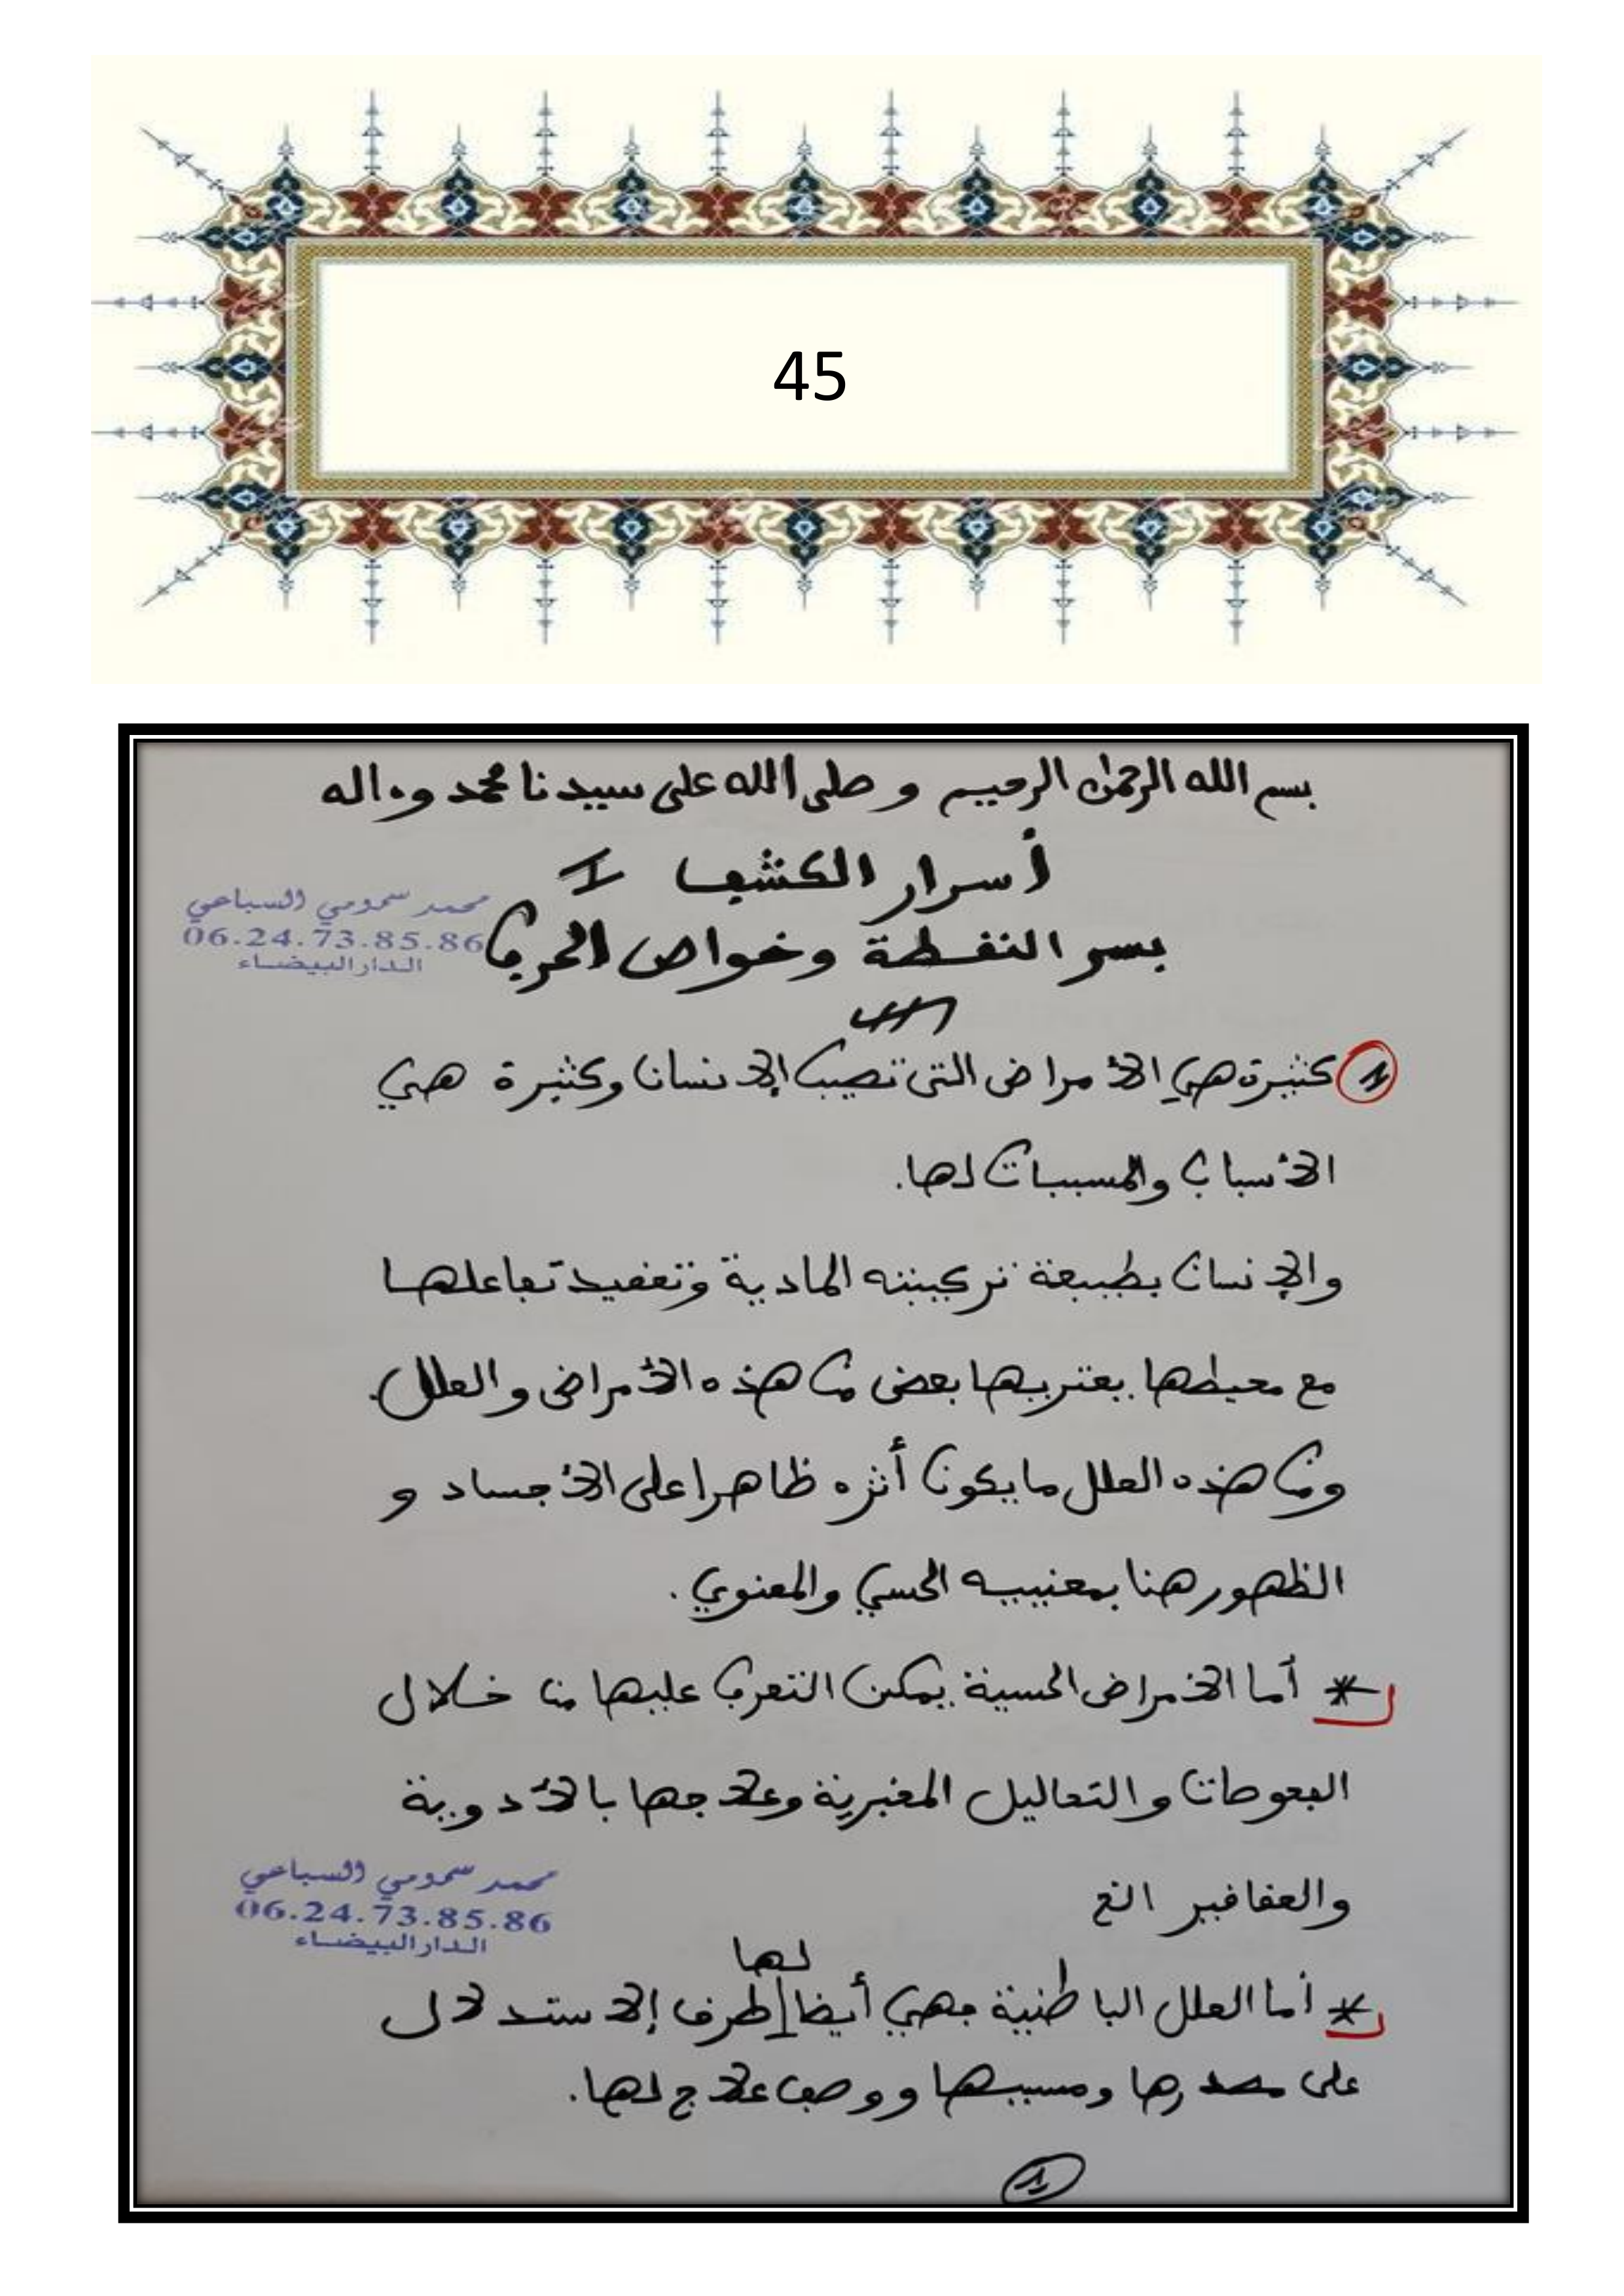 45
بسم الله الرحمن الرحيم وصلى الله على سيدنا محمد وءاله
أسرار الكشف I
بسر النقطة وخواص الحرف
محمد سمومي السباعي
06.24.73.85.86
الدار البيضاء
1 كثيرة هي الأمراض التي تصيب الإنسان وكثيرة هي
الأسباب والمسببات لها.
والإنسان بطبيعة تركيبته المادية وتعقيد تفاعلها
مع محيطها يعتريها بعض من هذه الأمراض والعلل.
ومن هذه العلل ما يكون أثره ظاهرا على الأجساد و
الظهور هنا بمعنييه الحسي والمعنوي.
* أما الأمراض الحسية يمكن التعرف عليها من خلال
الفحوصات والتحاليل المخبرية وعلاجها بالأدوية
والعقاقير الخ
محمد سمومي السباعي
06.24.73.85.86
الدار البيضاء
* أما العلل الباطنية فهي أيضا لها طرف إلاستدلال
على مصدرها ومسببها ووصف علاج لها.
1